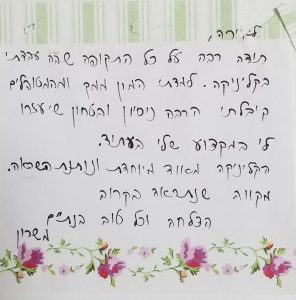 תודה רבה על כל התקופה שבה עבדתי
בקליניקה. למדתי המון ממך ומהמטופלים
קיבלתי הרבה ניסיון ובטחון שיעזרו
לי במקצוע שלי בעתיד.
הקליניקה מאוד מיוחדת ונותנת השראה.
מקווה שנתראה בקרוב
הצלחה וכל טוב בנתיים
משרון